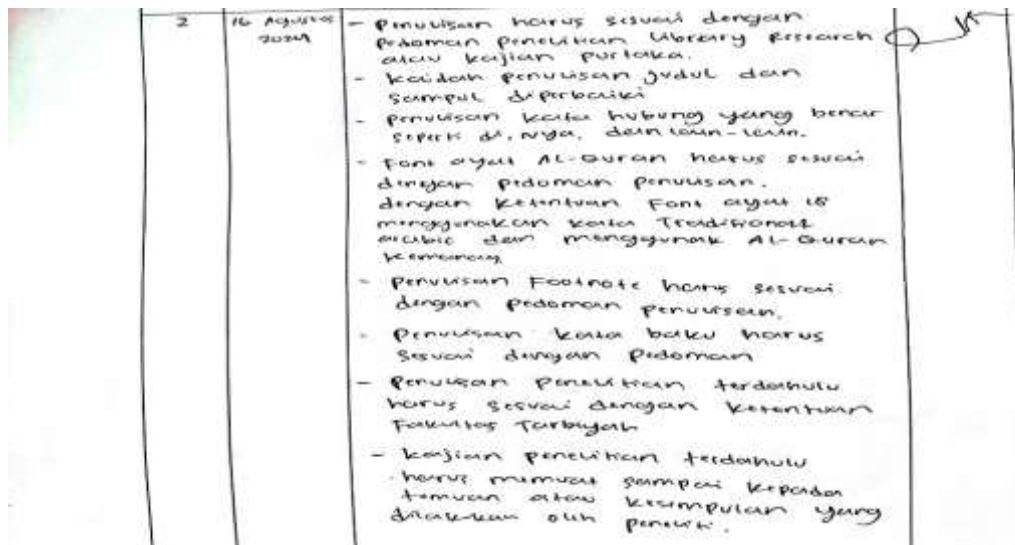 2
16 Agustus
2024
- Penulisan harus sesuai dengan
pedoman penelitian Library Research
atau kajian pustaka.
- kaidah penulisan judul dan
sampul diperbaiki
- penulisan kata hubung yang benar
seperti di, nya, dan lain-lain.
- Font ayat AL-Quran harus sesuai
dengan pedoman penulisan.
dengan ketentuan Font ayat 18
menggunakan kata Tradisional
arabic dan menggunak AL-Quran
kemenag
- penulisan Footnote harus sesuai
dengan pedoman penulisan.
- Penulisan kata baku harus
sesuai dengan pedoman
- Penulisan penelitian terdahulu
harus sesuai dengan ketentuan
Fakultas Tarbiyah
- kajian penelitian terdahulu
harus memuat sampai kepada
temuan atau kesimpulan yang
dilakukan oleh peneliti.